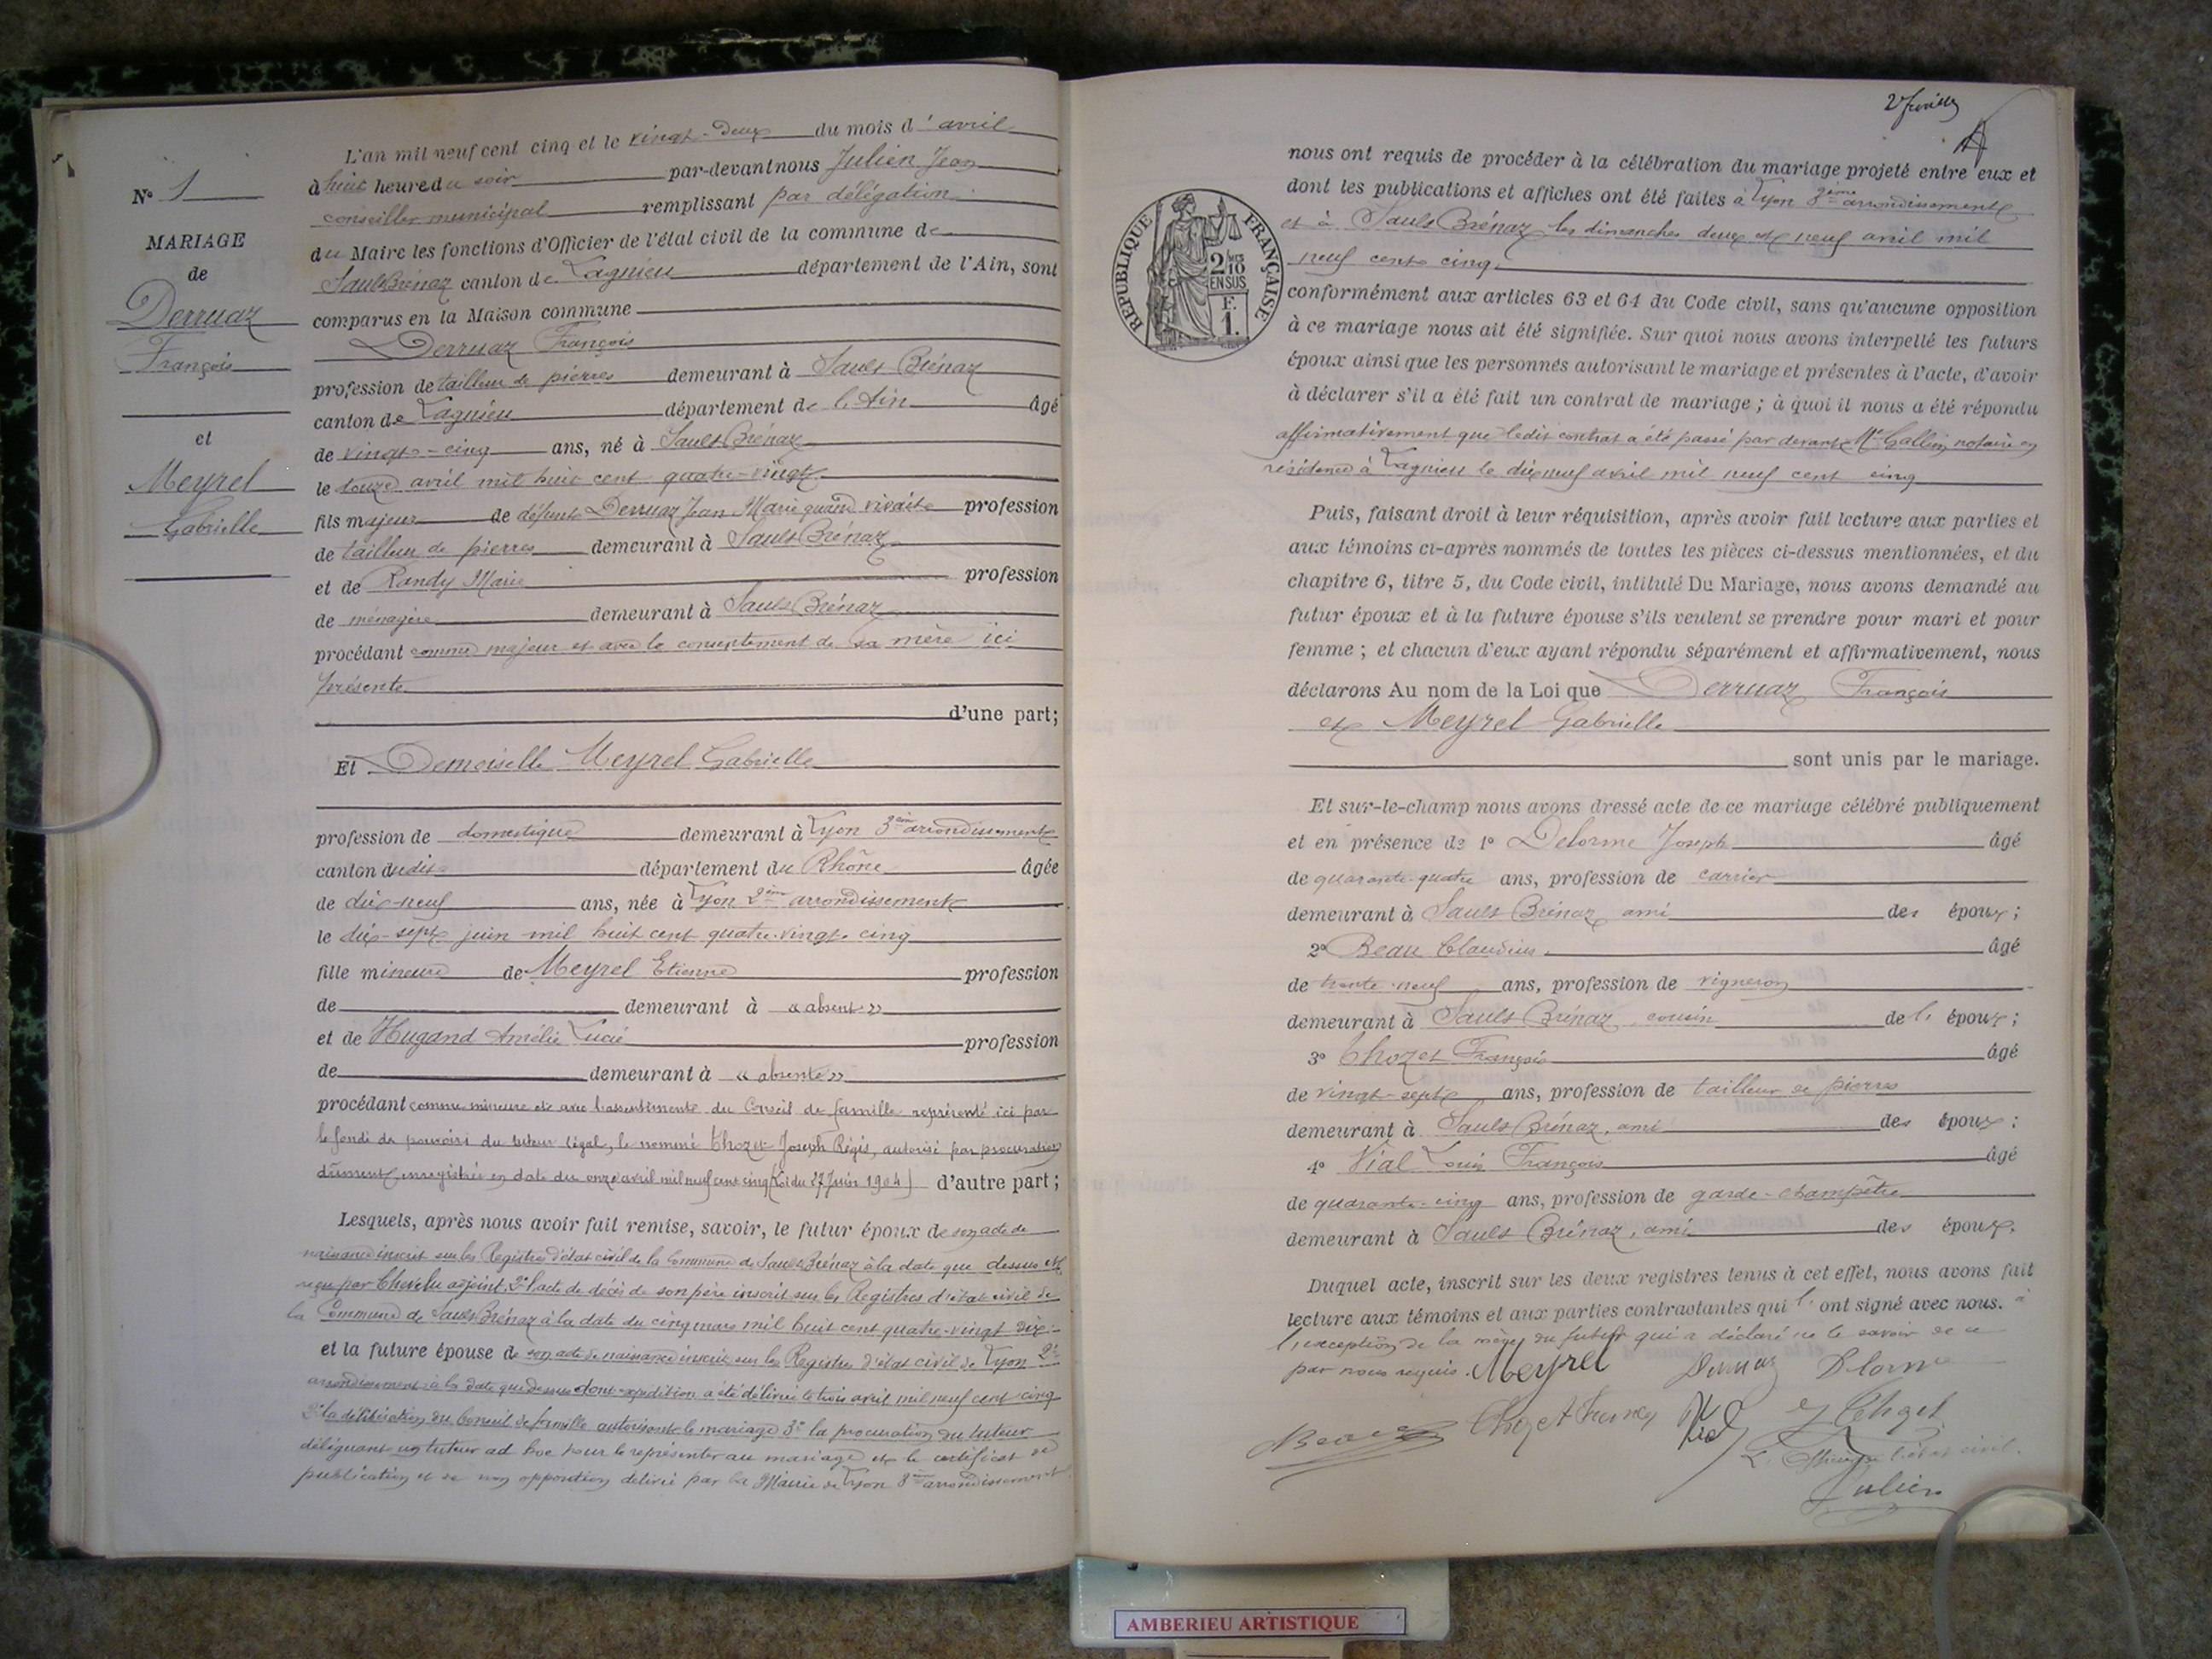 N° 1
MARIAGE
de
Derruaz
François
et
Meyrel
Gabrielle
L'an mil neuf cent cinq et le vingt-deux du mois d'avril
à huit heure du soir par-devant nous Julien Jean
conseiller municipal remplissant par délégation
du Maire les fonctions d'Officier de l'état civil de la commune de
Sault Brénaz canton de Lagnieu département de l'Ain, sont
comparus en la Maison commune
Derruaz François
profession de tailleur de pierres demeurant à Sault-Brénaz
canton de Lagnieu département de l'Ain âgé
de vingt-cinq ans, né à Sault Brénaz
le avril mil huit cent quatre-vingt
fils majeur de défunt Derruaz Jean Marie quand vivait profession
de tailleur de pierres demeurant à Sault Brénaz
et de Randy Marie profession
de ménagère demeurant à Sault Brénaz
procédant comme majeur et avec le consentement de sa mère ici
présente
d'une part;
Et Demoiselle Meyrel Gabrielle
profession de domestique demeurant à Lyon 3ème arrondissement
canton dudit département du Rhône âgée
de dix-neuf ans, née à Lyon 2ème arrondissement
le dix-sept juin mil huit cent quatre-vingt-cinq
fille mineure de Meyrel Etienne profession
de demeurant à « absent »
et de Hugand Amélie Lucie profession
de demeurant à « absente »
procédant comme mineure et avec l'assentiment du Conseil de famille représenté ici par
le fondé de pouvoirs du tuteur légal, le nommé Chozet Joseph Régis, autorisé par procuration
dûment enregistrée en date du onze avril mil neuf cent cinq (Loi du 27 Juin 1904) d'autre part;
Lesquels, après nous avoir fait remise, savoir, le futur époux de son acte de
naissance inscrit sur les Registres d'état civil de la Commune de Sault Brénaz à la date que dessus et
reçu par Chevelu adjoint, 2° l'acte de décès de son père inscrit sur les Registres d'état civil de
la Commune de Sault Brénaz à la date du cinq mars mil huit cent quatre-vingt dix
et la future épouse de son acte de naissance inscrit sur les Registres d'état civil de Lyon 2e
arrondissement à la date que dessus dont expédition a été délivrée le trois avril mil neuf cent cinq
2° la délibération du Conseil de famille autorisant le mariage 3° la procuration du tuteur
déléguant un tuteur ad hoc pour le représenter au mariage et le certificat de
publication et de non opposition délivré par la Mairie de Lyon 3ème arrondissement
nous ont requis de procéder à la célébration du mariage projeté entre eux et
dont les publications et affiches ont été faites à Lyon 3ème arrondissement
et à Sault Brénaz les dimanches deux et neuf avril mil
neuf cent cinq
RÉPUBLIQUE FRANÇAISE
2/10 EN SUS
F.
1.
conformément aux articles 63 et 64 du Code civil, sans qu'aucune opposition
à ce mariage nous ait été signifiée. Sur quoi nous avons interpellé les futurs
époux ainsi que les personnes autorisant le mariage et présentes à l'acte, d'avoir
à déclarer s'il a été fait un contrat de mariage ; à quoi il nous a été répondu
affirmativement que ledit contrat a été passé par devant Me notaire en
résidence à Lagnieu le dix neuf avril mil neuf cent cinq
Puis, faisant droit à leur réquisition, après avoir fait lecture aux parties et
aux témoins ci-après nommés de toutes les pièces ci-dessus mentionnées, et du
chapitre 6, titre 5, du Code civil, intitulé Du Mariage, nous avons demandé au
futur époux et à la future épouse s'ils veulent se prendre pour mari et pour
femme ; et chacun d'eux ayant répondu séparément et affirmativement, nous
déclarons Au nom de la Loi que Derruaz François
et Meyrel Gabrielle
sont unis par le mariage.
Et sur-le-champ nous avons dressé acte de ce mariage célébré publiquement
et en présence de 1° Delorme Joseph âgé
de quarante-quatre ans, profession de carrier
demeurant à Sault Brénaz ami des époux ;
2° Beau Claudius âgé
de trente-neuf ans, profession de vigneron
demeurant à Sault Brénaz, cousin de l' époux ;
3° Chozet François âgé
de vingt-sept ans, profession de tailleur de pierres
demeurant à Sault Brénaz, ami des époux ;
4° Vial Louis François âgé
de quarante-cinq ans, profession de garde-champêtre
demeurant à Sault Brénaz, ami des époux.
Duquel acte, inscrit sur les deux registres tenus à cet effet, nous avons fait
lecture aux témoins et aux parties contractantes qui l' ont signé avec nous. à
l'exception de la mère du futur qui a déclaré ne le savoir de ce
par nous requis. Meyrel Derruaz Delorme
Beau Chozet Vial Chozet
L'Officier de l'état civil.
Julien
AMBERIEU ARTISTIQUE